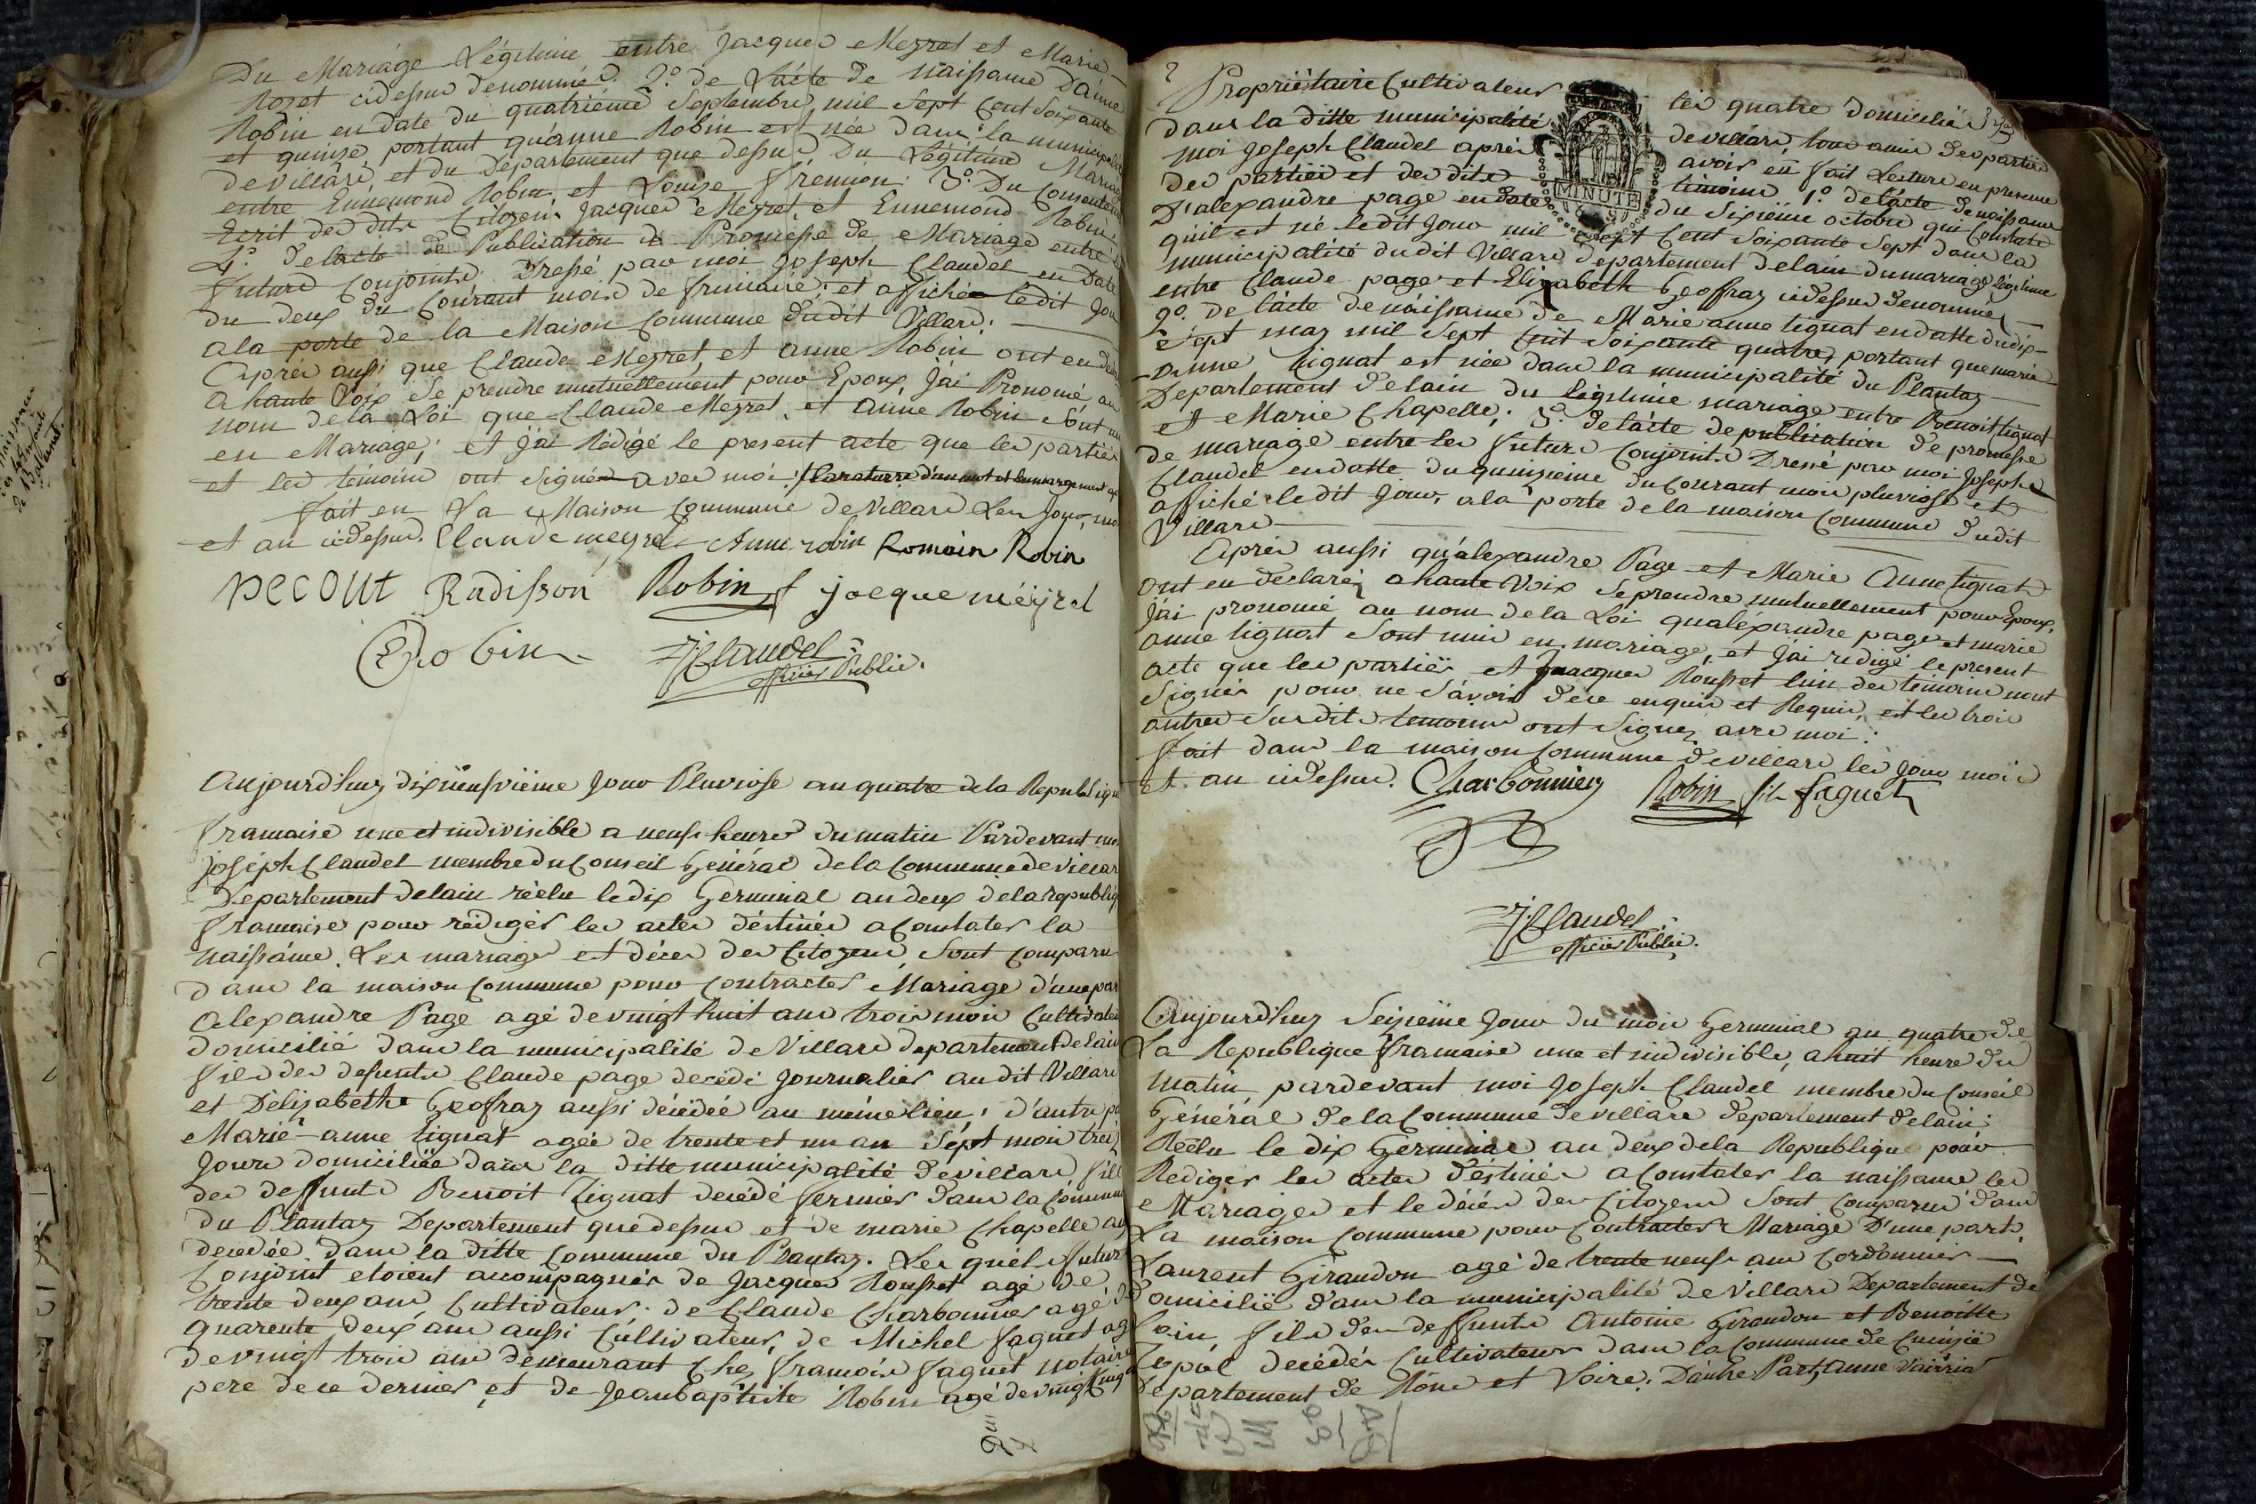 Du Mariage Légitime entre Jacques Meyret et Marie
Rozet cidessus denommés. 2º. de L'acte de Naissance D'anne
Robin en date du quatriéme Septembre, mil Sept Cent Soixante
et quinze portant qu'anne Robin est née dans la municipalité
de villars et du Departement que dessus, Du Légitime Mariage
entre Ennemond Robin et Louise fremion. 3º. Du Consentement
Ecrit des dits Citoyens Jacques Meyret, et Ennemond Robin.
4º. de l'acte de Publication de Promesse de Mariage entre les
futurs Conjoints Dressé par moi Joseph Claudel en Date
du deux du Courant mois de frimaire et affiché ledit Jour
a la porte de la Maison Commune dudit Villars.
Après aussi que Claude Meyret, et anne Robin ont en declaré
a haute Voix Se prendre mutuellement pour Epoux, J'ai Prononcé au
nom de la Loi que Claude Meyret, et Anne Robin Sont unis
en Mariage; et J'ai Rédigé le present acte que les parties
et les témoins ont Signés avec moi
fait en La Maison Commune de Villars Les Jour, mois
et an cidessus. Claude meyret Anne robin Romain Robin
pecout Radisson Robin fs jacque méyret
Robin J Claudel
officier Public.
Aujourd'huy dixneufvième Jour Pluviose an quatre de la Republique
francaise une et indivisible a neuf heures du matin Pardevant moi
Joseph Claudel membre du Conseil Général de la Commune de Villars
Departement de lain réélu le dix Germinal an deux de la republique
francaise pour rediger les actes déstinés a Constater la
naissance, Les mariages et décès des Citoyens, Sont Comparu
dans la maison Commune pour Contracter Mariage d'une part
Alexandre Page agé de vingt huit ans trois mois Cultivateur
domicilié dans la municipalité de Villars departement de lain
fils des defunts Claude page decédé Journalier au dit Villars
et D'élizabeth Geoffray aussi décédée au même lieu, d'autre part
Marie-anne Lignat agée de trente et un an Sept mois treize
Jours domiciliée dans la ditte municipalité de villars fille
des deffunts Benoit Lignat decédé fermier dans la Commune
du Plantay Departement que dessus et de marie Chapelle aussi
decedée dans la ditte Commune du Plantay. Les quels futurs
Conjoint etoient accompagnés de Jacques Rousset agé de
trente deux ans, Cultivateur. de Claude Charbonnier agé de
quarente deux ans aussi Cultivateur, de Michel faguet agé
de vingt trois ans demeurant Chez francois faguet notaire
pere de ce dernier, et de Jean baptiste Robin agé de vingt cinq
2
Propriétaire Cultivateur tés quatre domiciliés
dans la ditte municipalité de villars, tous amis des parties
moi Joseph Claudel après avoir en fait Lecture en presence
des parties et des dits témoins 1º. de l'acte de naissance
D'alexandre page en date du Sixième octobre qui Constate
qu'il est né ledit Jour mil Sept Cent Soixante Sept dans la
municipalité dudit Villars departement de lain du mariage légitime
entre Claude page et Elizabeth Geoffray cidessus denommés
2º. de lácte de naissance de Marie anne Lignat en datte du dix-
Sept may mil Sept Cent Soixante quatre, portant que marie-
anne Lignat est née dans la municipalité du Plantay
Departement de lain du légitime mariage entre Benoit Lignat
et Marie Chapelle; 3º. de l'acte de publication de promesse
de mariage entre les futurs Conjoints Dressé par moi Joseph
Claudel en datte du quinzieme du Courant mois pluviose et
affiché le dit Jour, a la porte de la maison Commune dudit
Villars
Après aussi qu'alexandre Page et Marie Anne Lignat
ont en déclarés a haute Voix Se prendre mutuellement pour Epoux,
J'ai prononcé au nom de la Loi qu'aléxandre page et marie
anne Lignat Sont unis en mariage, et J'ai redigé le present
acte que les parties et Jacques Rousset l'un des témoins n'ont
Signés pour ne Sávoir déce enquis et Requis, et les trois
autres Susdits temoins ont Signez avec moi.
fait dans la maison Commune de villars les Jour mois
et an cidessus. Charbonnier Robin fils faguet
J Claudel
officier Public.
Aujourd'huy Seizième Jour du mois Germinal an quatre de
La Republique francaise une et indivisible, a huit heure du
matin pardevant moi Joseph Claudel membre du Conseil
Général de la Commune de villars departement de lain
Réélu le dix Germinal an deux de la Republique pour
Rediger les actes déstinés a Constater la naissance les
Mariages et le décès des Citoyens Sont Comparus dans
La maison Commune pour Contracter Mariage D'une part,
Laurent Giraudon agé de trente neuf ans Cordonnier
domicilié dans la municipalité de Villars Departement de
lain fils des deffunts Antoine Giraudon et Benoitte
decédés Cultivateurs dans la Commune de
departement de Rône et Loire, D'autre Part, anne
MINUTE